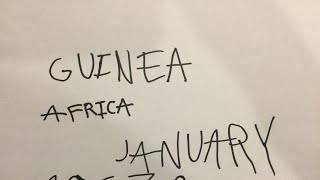 GUINEA
AFRICA
JANUARY